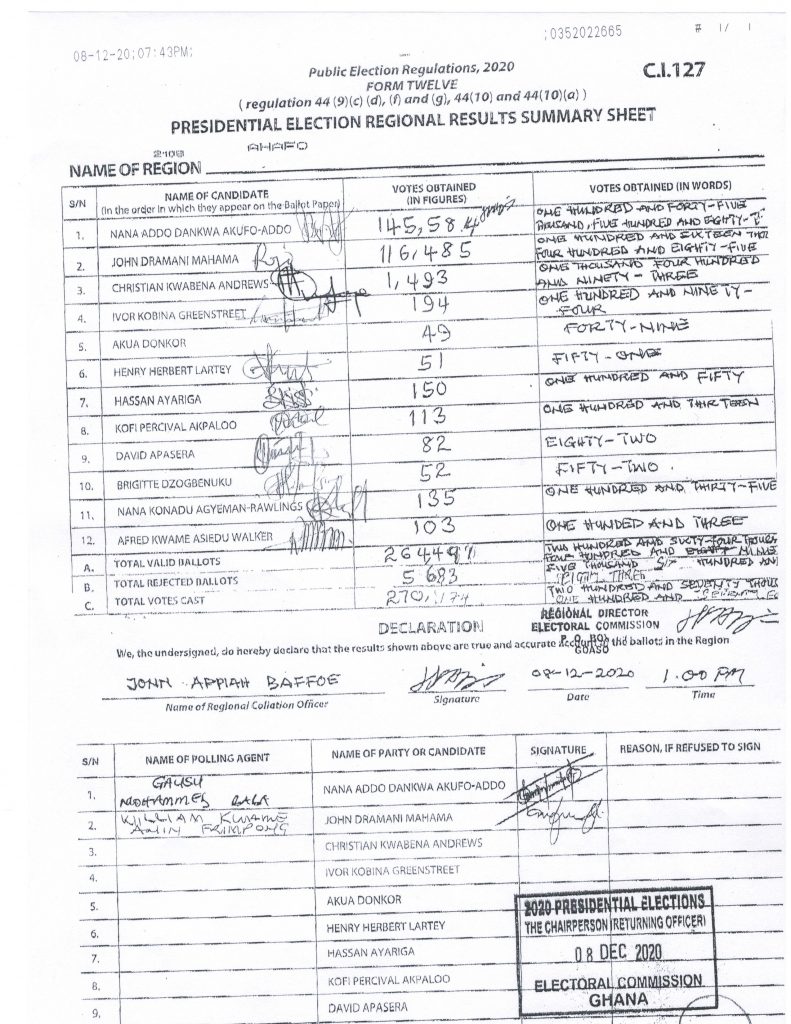 08-12-20;07:43PM;
;0352022665
# 1/ 1
Public Election Regulations, 2020
FORM TWELVE
C.I.127
( regulation 44 (9)(c) (d), (f) and (g), 44(10) and 44(10)(a) )
PRESIDENTIAL ELECTION REGIONAL RESULTS SUMMARY SHEET
AHAFO
NAME OF REGION
S/N NAME OF CANDIDATE (In the order in which they appear on the Ballot Paper) VOTES OBTAINED (IN FIGURES) VOTES OBTAINED (IN WORDS)
1. NANA ADDO DANKWA AKUFO-ADDO 145,584 ONE HUNDRED AND FORTY-FIVE
THOUSAND, FIVE HUNDRED AND EIGHTY-
2. JOHN DRAMANI MAHAMA 116,485 ONE HUNDRED AND SIXTEEN THOU
FOUR HUNDRED AND EIGHTY-FIVE
3. CHRISTIAN KWABENA ANDREWS 1,493 ONE THOUSAND FOUR HUNDRED
AND NINETY-THREE
4. IVOR KOBINA GREENSTREET 194 ONE HUNDRED AND NINETY-
FOUR
5. AKUA DONKOR 49 FORTY-NINE
6. HENRY HERBERT LARTEY 51 FIFTY-ONE
7. HASSAN AYARIGA 150 ONE HUNDRED AND FIFTY
8. KOFI PERCIVAL AKPALOO 113 ONE HUNDRED AND THIRTEEN
9. DAVID APASERA 82 EIGHTY-TWO
10. BRIGITTE DZOGBENUKU 52 FIFTY-TWO.
11. NANA KONADU AGYEMAN-RAWLINGS 135 ONE HUNDRED AND THIRTY-FIVE
12. AFRED KWAME ASIEDU WALKER 103 ONE HUNDED AND THREE
A. TOTAL VALID BALLOTS TWO HUNDRED AND SIXTY-FOUR THOUSA
FOUR HUNDRED AND NINE
B. TOTAL REJECTED BALLOTS 5 683 FIVE THOUSAND SIX HUNDRED AND
THREE
C. TOTAL VOTES CAST TWO HUNDRED AND SEVENTY THOUS
ONE HUNDRED AND
REGIONAL DIRECTOR
DECLARATION ELECTORAL COMMISSION
P. O. BOX
GOASO
We, the undersigned, do hereby declare that the results shown above are true and accurate account of the ballots in the Region
JOHN APPIAH BAFFOE 08-12-2020 1.00 PM
Name of Regional Collation Officer Signature Date Time
S/N NAME OF POLLING AGENT NAME OF PARTY OR CANDIDATE SIGNATURE REASON, IF REFUSED TO SIGN
1. GAUSU
MOHAMMED BABA NANA ADDO DANKWA AKUFO-ADDO
2. WILLIAM KWAME
FRIMPONG JOHN DRAMANI MAHAMA
3. CHRISTIAN KWABENA ANDREWS
4. IVOR KOBINA GREENSTREET
5. AKUA DONKOR
6. HENRY HERBERT LARTEY
7. HASSAN AYARIGA
8. KOFI PERCIVAL AKPALOO
9. DAVID APASERA
2020 PRESIDENTIAL ELECTIONS
THE CHAIRPERSON (RETURNING OFFICER)
08 DEC 2020
ELECTORAL COMMISSION
GHANA